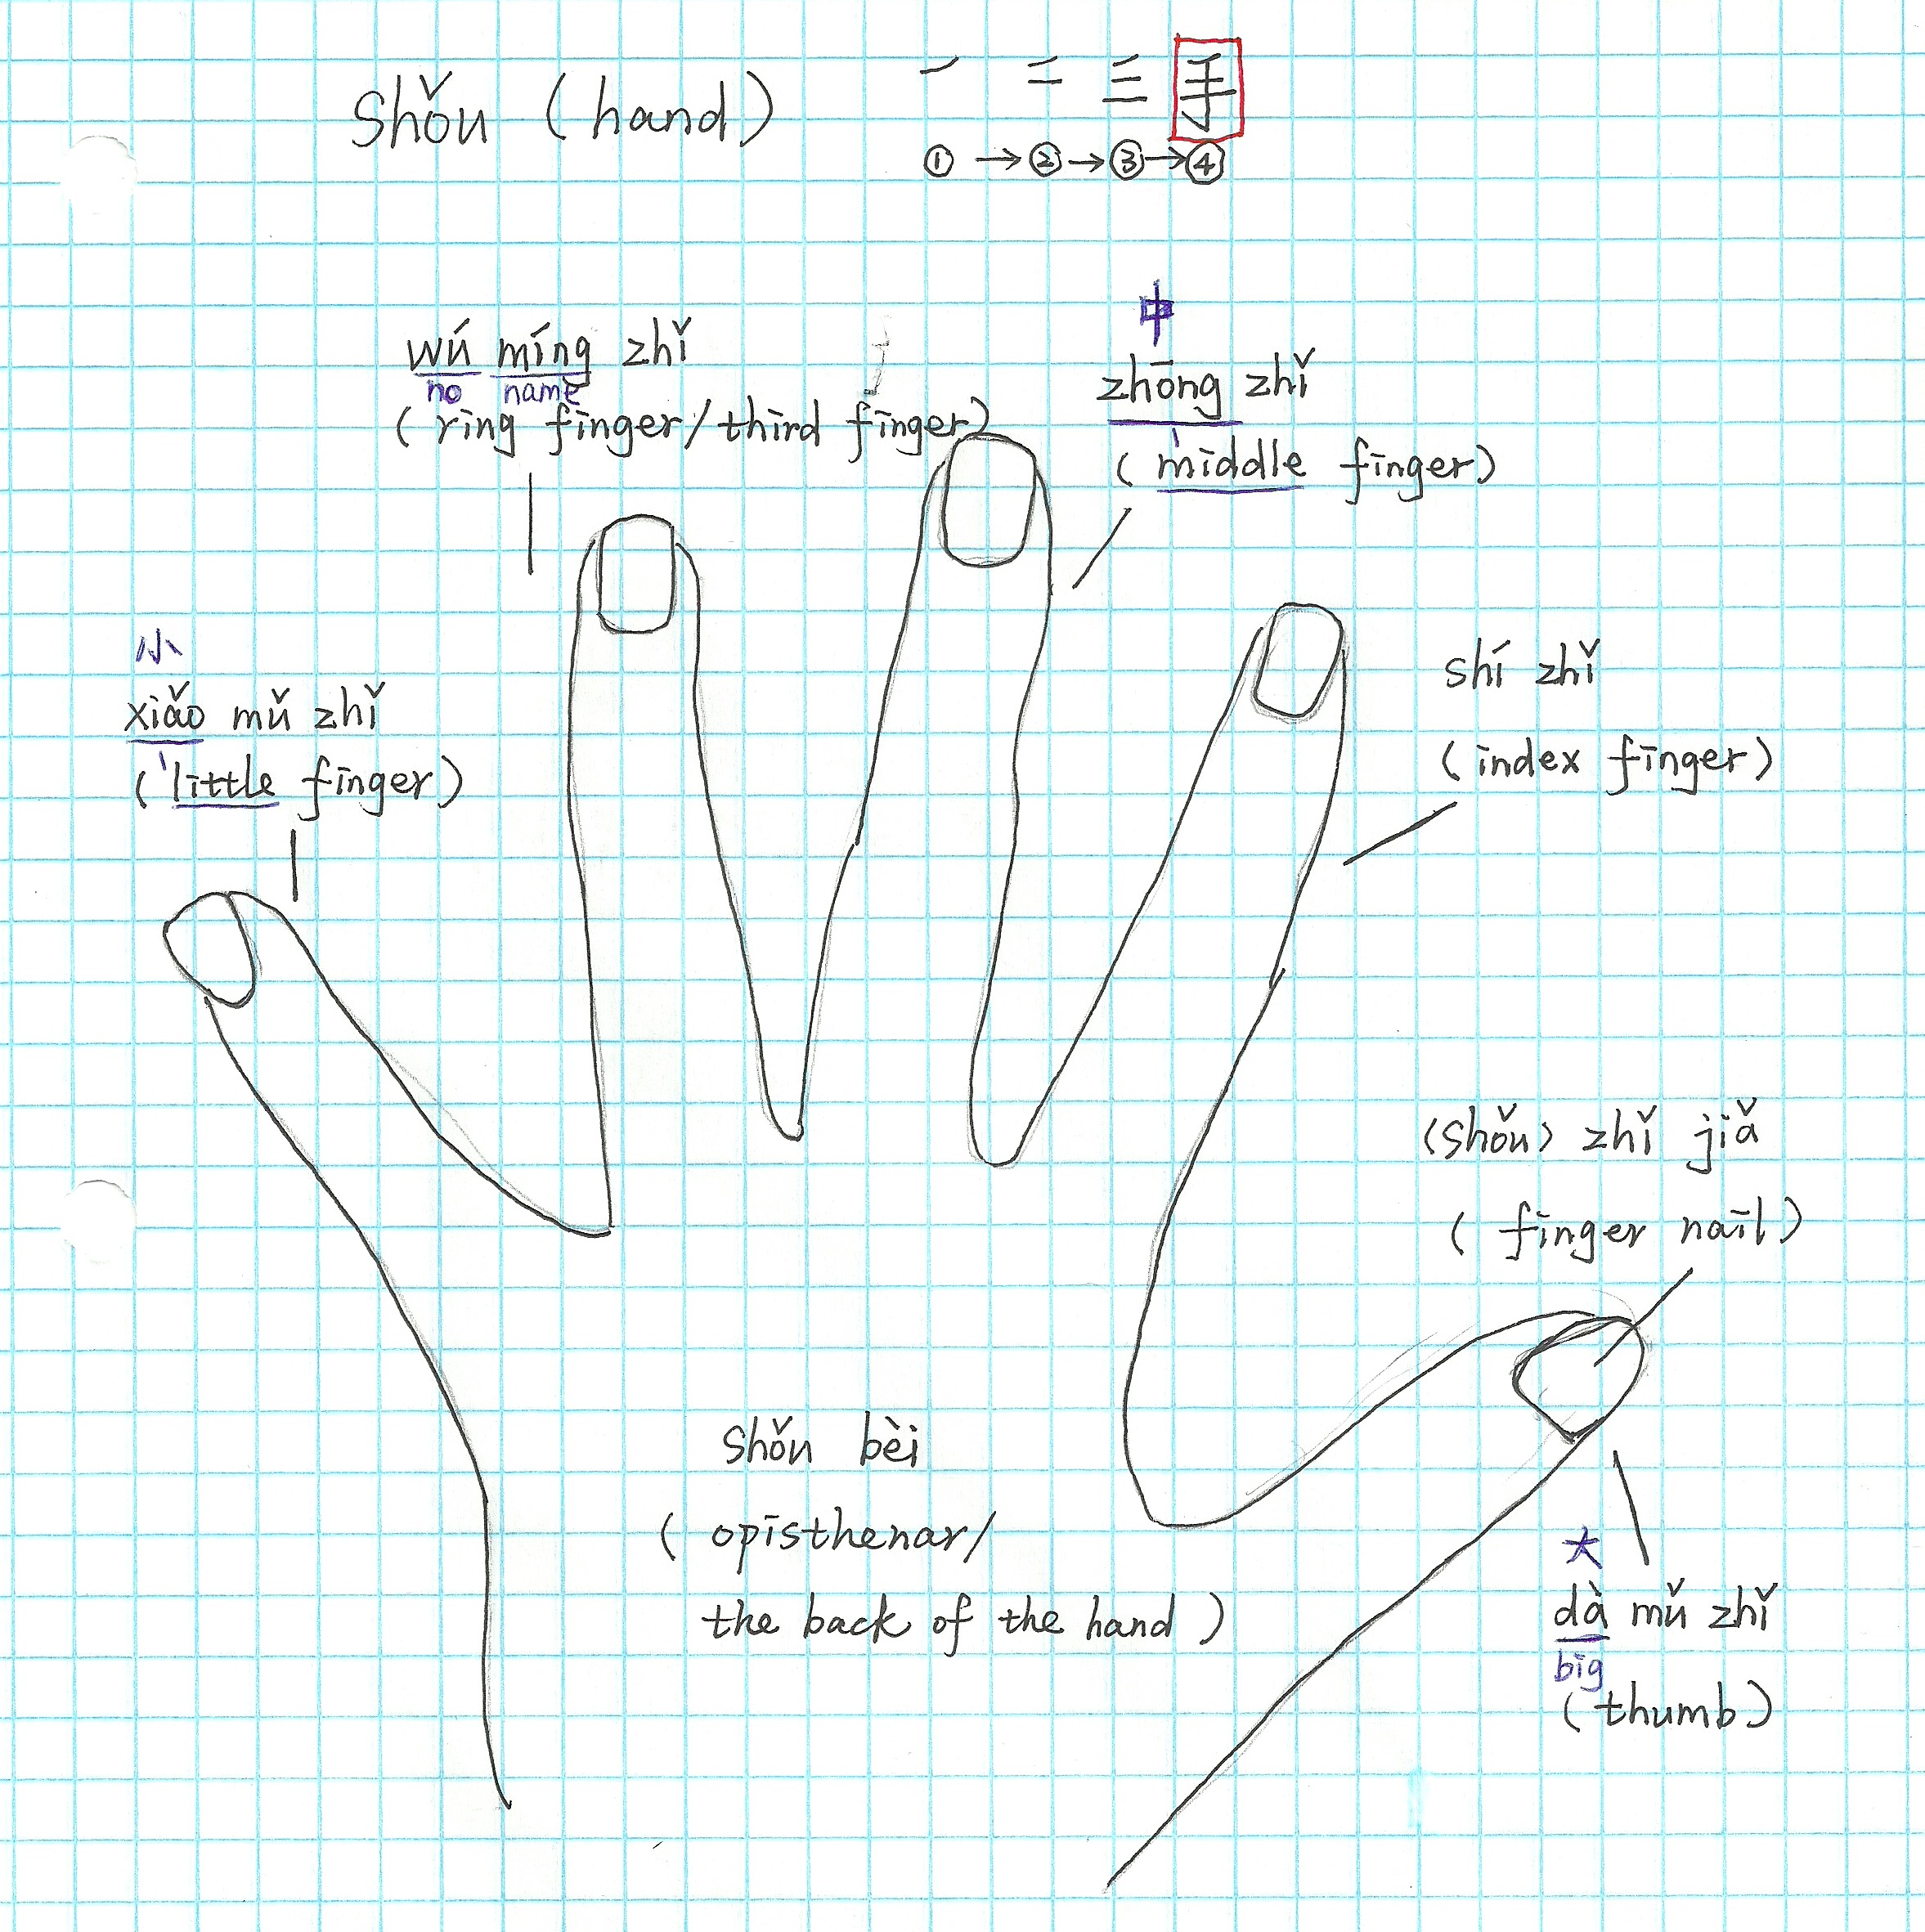 shǒu (hand)
一 二 三 手
① → ② → ③ → ④
wú míng zhǐ
no name
(ring finger/third finger)
中
zhōng zhǐ
(middle finger)
小
xiǎo mǔ zhǐ
(little finger)
shí zhǐ
(index finger)
(shǒu) zhǐ jiǎ
(finger nail)
shǒu bèi
(opisthenar/
the back of the hand)
大
dà mǔ zhǐ
big
(thumb)